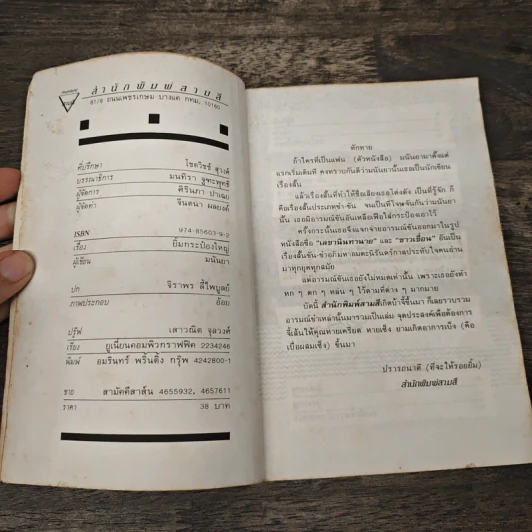 สำนักพิมพ์สามสี
81/6 ถนนเพชรเกษม บางแค กทม. 10160
ที่ปรึกษา โชติวิชช์ สุวงศ์
บรรณาธิการ มนทิรา จูฑะพุทธิ
ผู้จัดการ ศิรินภา ปาเฉย
ผู้จัดทำ จินตนา ผลยงค์
ISBN 974-85603-9-2
เรื่อง ยิ้มกระป๋องใหญ่
ผู้เขียน มนันยา
ปก จิราพร ลี้ไพบูลย์
ภาพประกอบ อ้อย
ปรู๊ฟ เสาวณิต จุลวงศ์
เรียง ยูเนี่ยนคอมพิวกราฟฟิค 2234246
พิมพ์ อมรินทร์ พริ้นติ้ง กรุ๊พ 4242800-1
ขาย สามัคคีสาส์น 4655932, 4657611
ราคา 38 บาท
ทักทาย
ถ้าใครที่เป็นแฟน (ตัวหนังสือ) มนันยามาตั้งแต่
แรกเริ่มเดิมที คงทราบกันดีว่ามนันยานั้นเธอเป็นนักเขียน
เรื่องสั้น
แล้วเรื่องสั้นที่ทำให้ชื่อเสียงเธอโด่งดัง เป็นที่รู้จัก ก็
คือเรื่องสั้นประเภทขำ-ขัน จนเป็นที่โจษจันกันว่ามนันยา
นั้น เธอมีอารมณ์ขันอันเหลือเฟือใส่กระป๋องเอาไว้
ครั้งกระนั้นเธอจึงแจกจ่ายอารมณ์ขันออกมาในรูป
หนังสือชื่อ "เลขานินทานาย" และ "ชาวเขื่อน" อันเป็น
เรื่องสั้นขัน-ขำอภิมหาอมตะนิรันดร์กาลประทับใจคนอ่าน
มาทุกยุคทุกสมัย
แต่อารมณ์ขันเธอยังไม่หมดเท่านั้น เพราะเธอยังทำ
หก ๆ ตก ๆ หล่น ๆ ไว้ตามที่ต่าง ๆ มากมาย
บัดนี้ สำนักพิมพ์สามสีเกิดบ้าจี้ขึ้นมา ก็เลยรวบรวม
อารมณ์ขำเหล่านั้นมารวมเป็นเล่ม จุดประสงค์เพื่อต้องการ
จี้เส้นให้คุณหายเครียด หายเซ็ง ยามเกิดอาการเบ็ง (คือ
เบื่อผสมเซ็ง) ขึ้นมา
ปรารถนาดี (ที่จะให้รอยยิ้ม)
สำนักพิมพ์สามสี